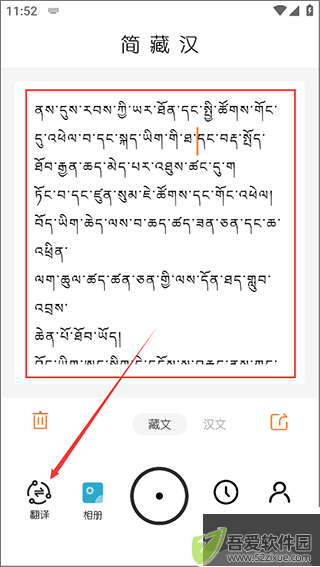 11:52
简藏汉
ནས་དུས་རབས་ཀྱི་ཡར་ཐོན་དང་སྤྱི་ཚོགས་གོང་
དུ་འཕེལ་བ་དང་སྐད་ཡིག་གི་ཐ་དང་བརྡ་སྤྲོད་
ཐོབ་རྒྱན་ཆད་མེད་པར་འཐུས་ཚང་དུ་ག
ཏོང་བ་དང་ཛུན་སུམ་ཇེ་ཚོགས་དང་གོང་འཕེལ།
བོད་ཡིག་ཆེད་ལས་བ་ཆད་ཚད་ཟན་ཅན་དང་ཆ་
འཕྲིན་
ལག་རྩལ་ཚད་ཚན་ཅན་གྱི་ལས་དོན་ཐད་གྲུབ་
འབྲས་
ཆེན་པོ་ཐོབ་ཡོད།
藏文
汉文
翻译
相册
吾爱软件园
www.52zixue.com